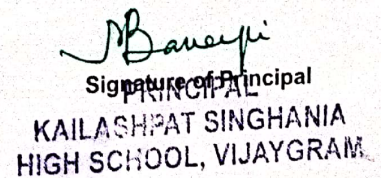 Signature of Principal
PRINCIPAL
KAILASHPAT SINGHANIA
HIGH SCHOOL, VIJAYGRAM